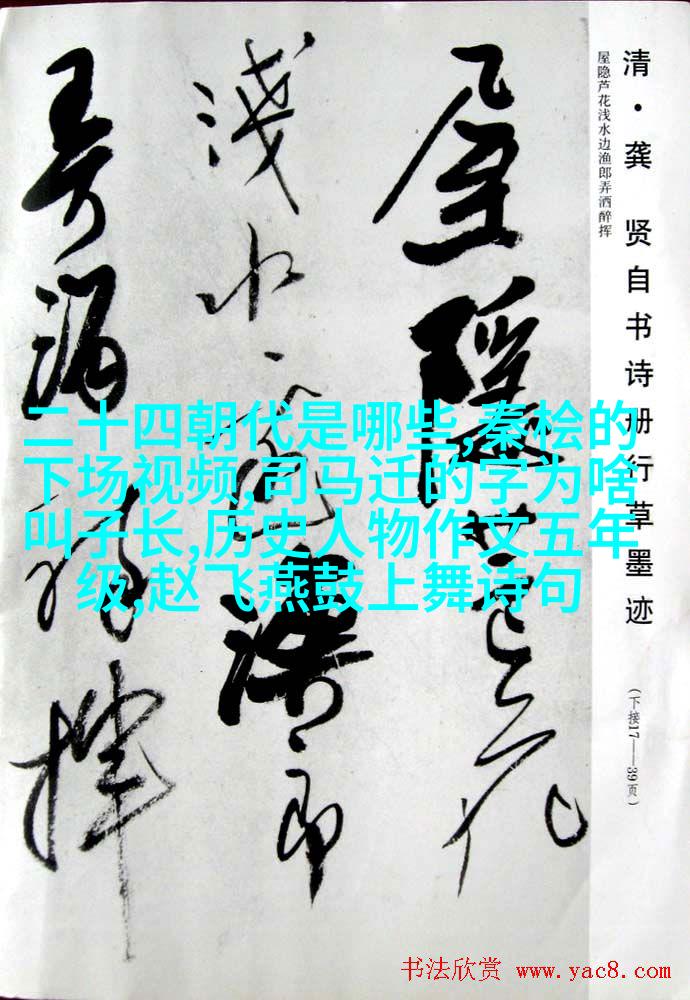 清·龚 贤自书诗册行草墨迹
屋隐芦花浅水边渔郎弄洒醉挥
(下接17——39页)
屋隐芦花
浅水边渔郎
弄酒醉挥
二十四朝代是哪些,秦桧的
下场视频,司马迁的字为啥
叫子长,历史人物作文五年
级,赵飞燕鼓上舞诗句
书法欣赏 www.yac8.com